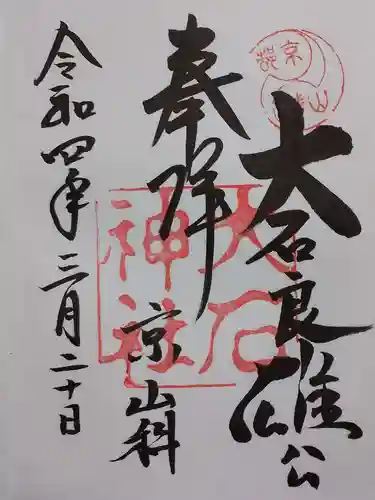 大石良雄公
奉拝
京山科
令和四年三月二十日
大石神社